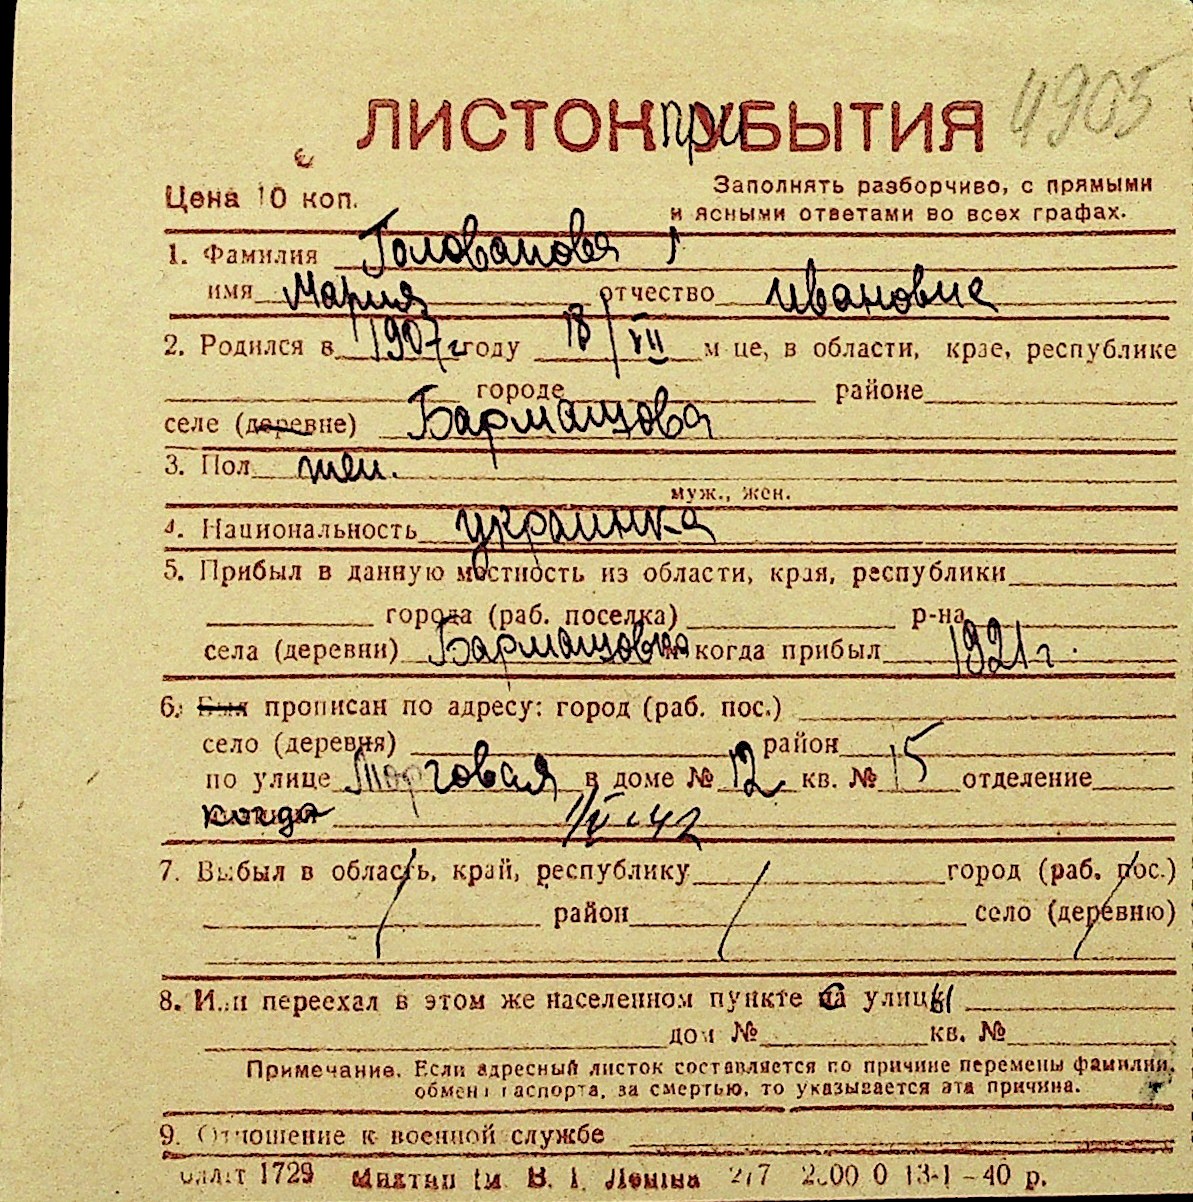 4905
ЛИСТОК приБЫТИЯ
Цена 10 коп.
Заполнять разборчиво, с прямыми
и ясными ответами во всех графах.
1. Фамилия Голованова
имя Мария отчество Ивановна
2. Родился в 1907 г году 18/VII м-це, в области, крае, республике
городе районе
селе (деревне) Бармашова
3. Пол жен.
муж., жен.
4. Национальность украинка
5. Прибыл в данную местность из области, края, республики
города (раб. поселка) р-на
села (деревни) Бармашовка когда прибыл 1921 г.
6. Был прописан по адресу: город (раб. пос.)
село (деревня) район
по улице Торговая в доме № 12 кв. № 15 отделение
когда 1/V-42
7. Выбыл в область, край, республику город (раб. пос.)
район село (деревню)
8. Или переехал в этом же населенном пункте с улицы
дом № кв. №
Примечание. Если адресный листок составляется по причине перемены фамилии,
обмена паспорта, за смертью, то указывается эта причина.
9. Отношение к военной службе
1729 Миктип ім. В. І. Леніна 277 2000 0 13-1-40 р.